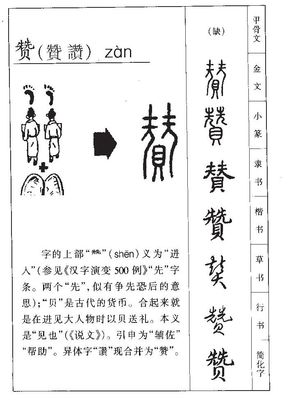 赞(贊讚) zàn
字的上部“兟”(shēn)义为“进
入”(参见《汉字演变500例》“先”字
条。两个“先”,似有争先恐后的意
思);“贝”是古代的货币。合起来就
是在进见大人物时以贝送礼。本义
是“见也”(《说文》)。引申为“辅佐”
“帮助”。异体字“讚”现合并为“赞”。
(缺)
甲骨文
金文
小篆
隶书
楷书
草书
行书
简化字